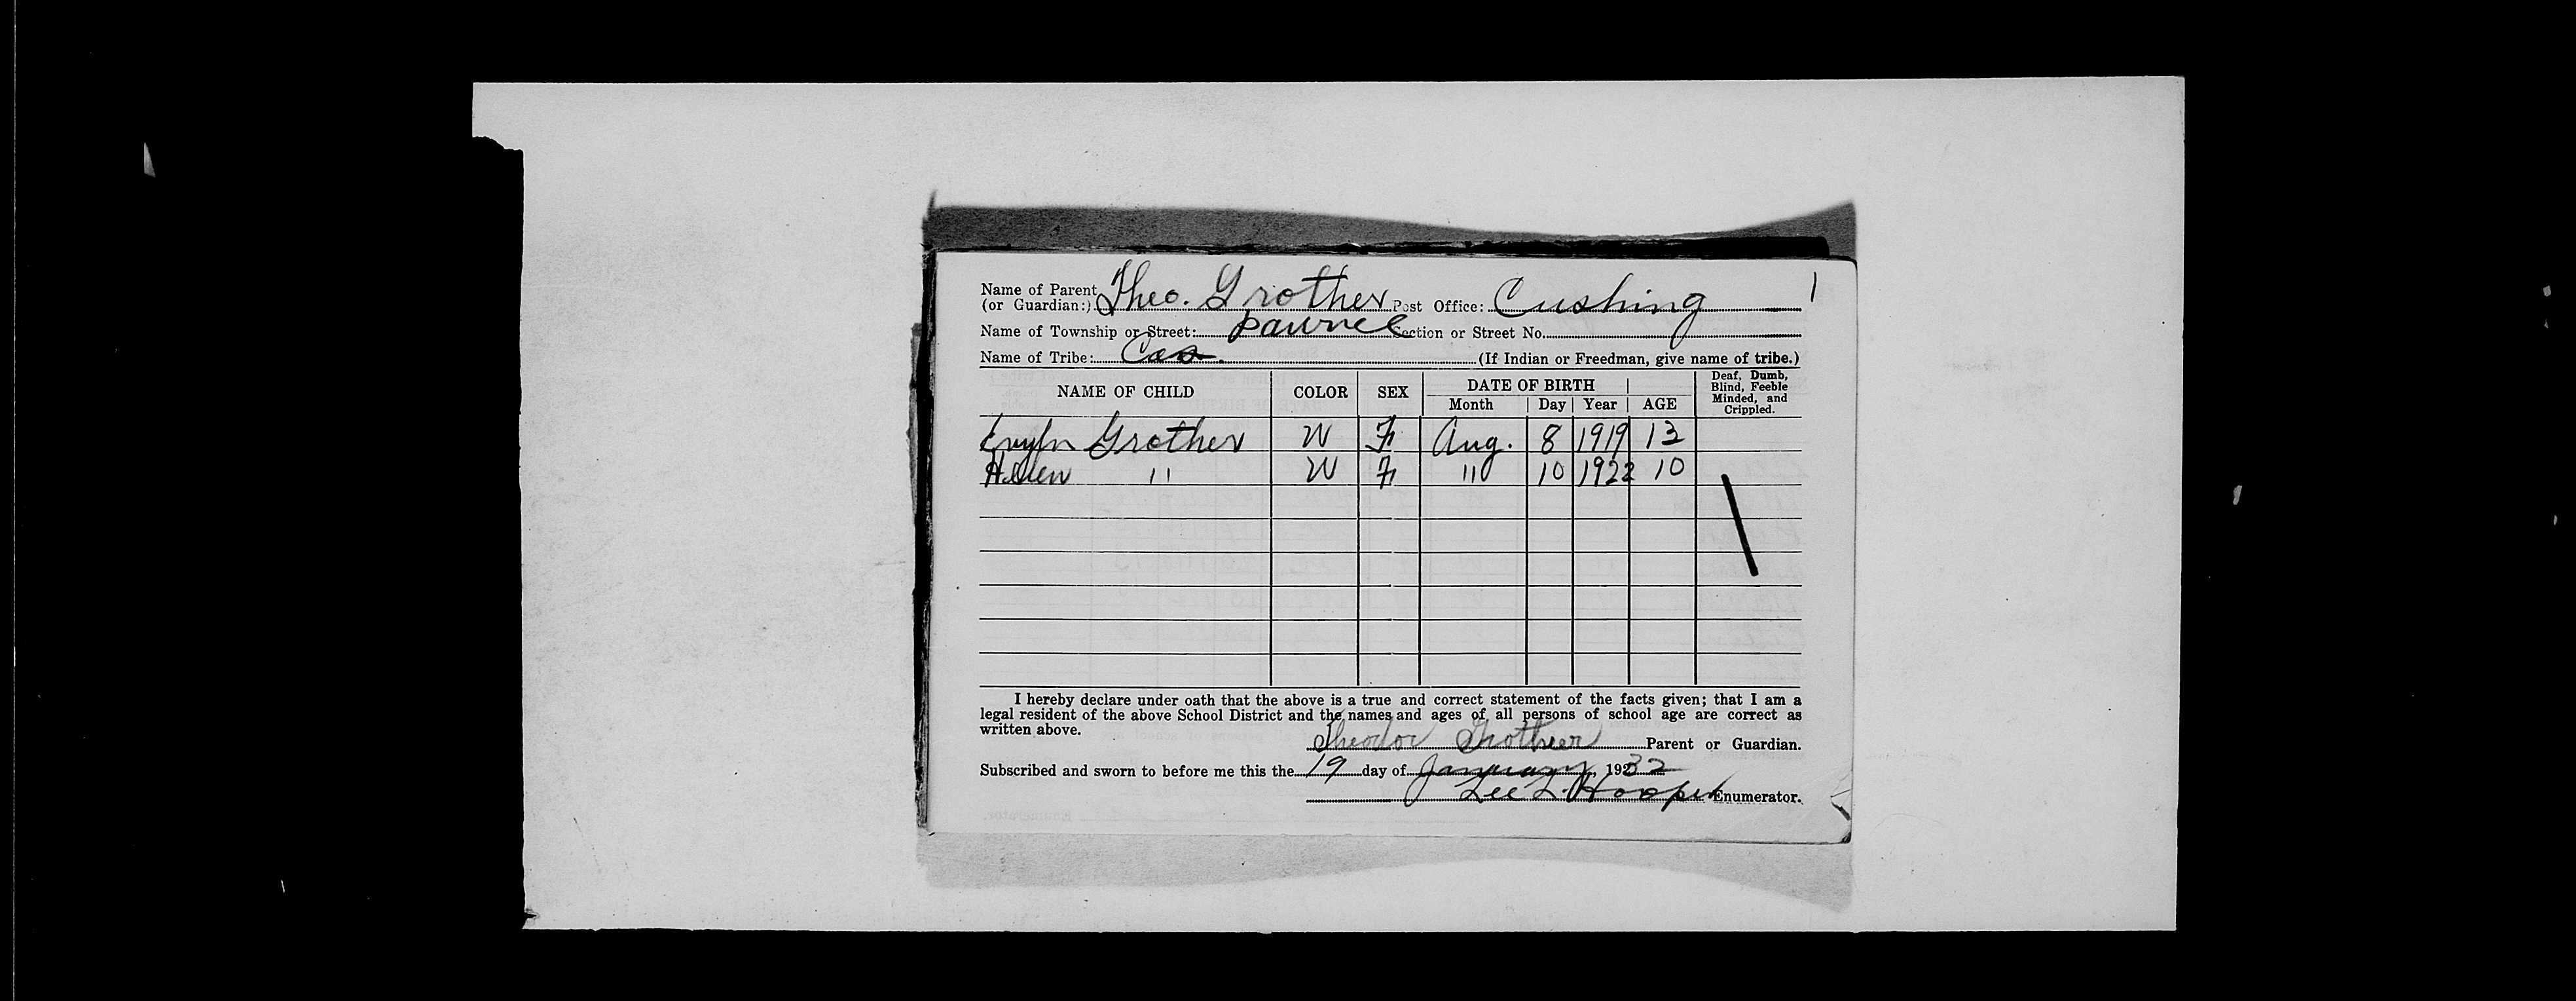 Name of Parent
(or Guardian:) Theo. Grother Post Office: Cushing 1
Name of Township or Street: Pawnee Section or Street No.
Name of Tribe: Cas. (If Indian or Freedman, give name of tribe.)
NAME OF CHILD COLOR SEX DATE OF BIRTH Month Day Year AGE Deaf, Dumb, Blind, Feeble Minded, and Crippled.
Evyln Grother W F Aug. 8 1919 13
Helen " W F " 10 1922 10
I hereby declare under oath that the above is a true and correct statement of the facts given; that I am a
legal resident of the above School District and the names and ages of all persons of school age are correct as
written above.
Theodor Grotheer Parent or Guardian.
Subscribed and sworn to before me this the 19 day of January, 1932
Lee L. Hooper Enumerator.